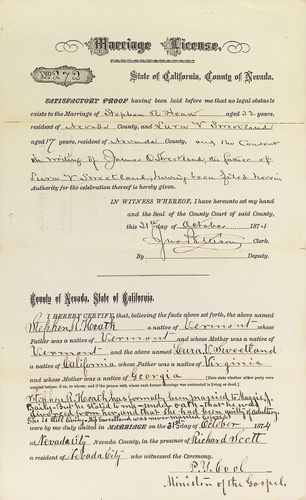 Marriage License,
No. 272
State of California, County of Nevada.
SATISFACTORY PROOF having been laid before me that no legal obstacle
exists to the Marriage of Stephen R Heath aged 32 years,
resident of Nevada County, and Cura V Sweetland
aged 17 years, resident of Nevada County, and the Consent
in writing of James O Sweetland, the father of
Cura V Sweetland, having been filed herein
Authority for the celebration thereof is hereby given.
IN WITNESS WHEREOF, I have hereunto set my hand
and the Seal of the County Court of said County,
this 31st day of October 1874
Clerk.
By Deputy.
County of Nevada, State of California.
I HEREBY CERTIFY, that, believing the facts above set forth, the above named
Stephen R. Heath a native of Vermont whose
Father was a native of Vermont and whose Mother was a native of
Vermont and the above named Cura V. Sweetland a
native of California, whose Father was a native of Virginia
and whose Mother was a Native of Georgia
Stephen R. Heath has formerly been married to Maggie J.
Baily but he stated to me under oath that he was
divorced from her and that she had been guilty of adultery
She is still living. Miss Sweetland was never married before
were by me duly united in MARRIAGE on the 31st day of October, 1874
at Nevada City Nevada County, in the presence of Richard Scott
a resident of Nevada City who witnessed the Ceremony.
P. Y. Cool,
Minister of the Gospel,